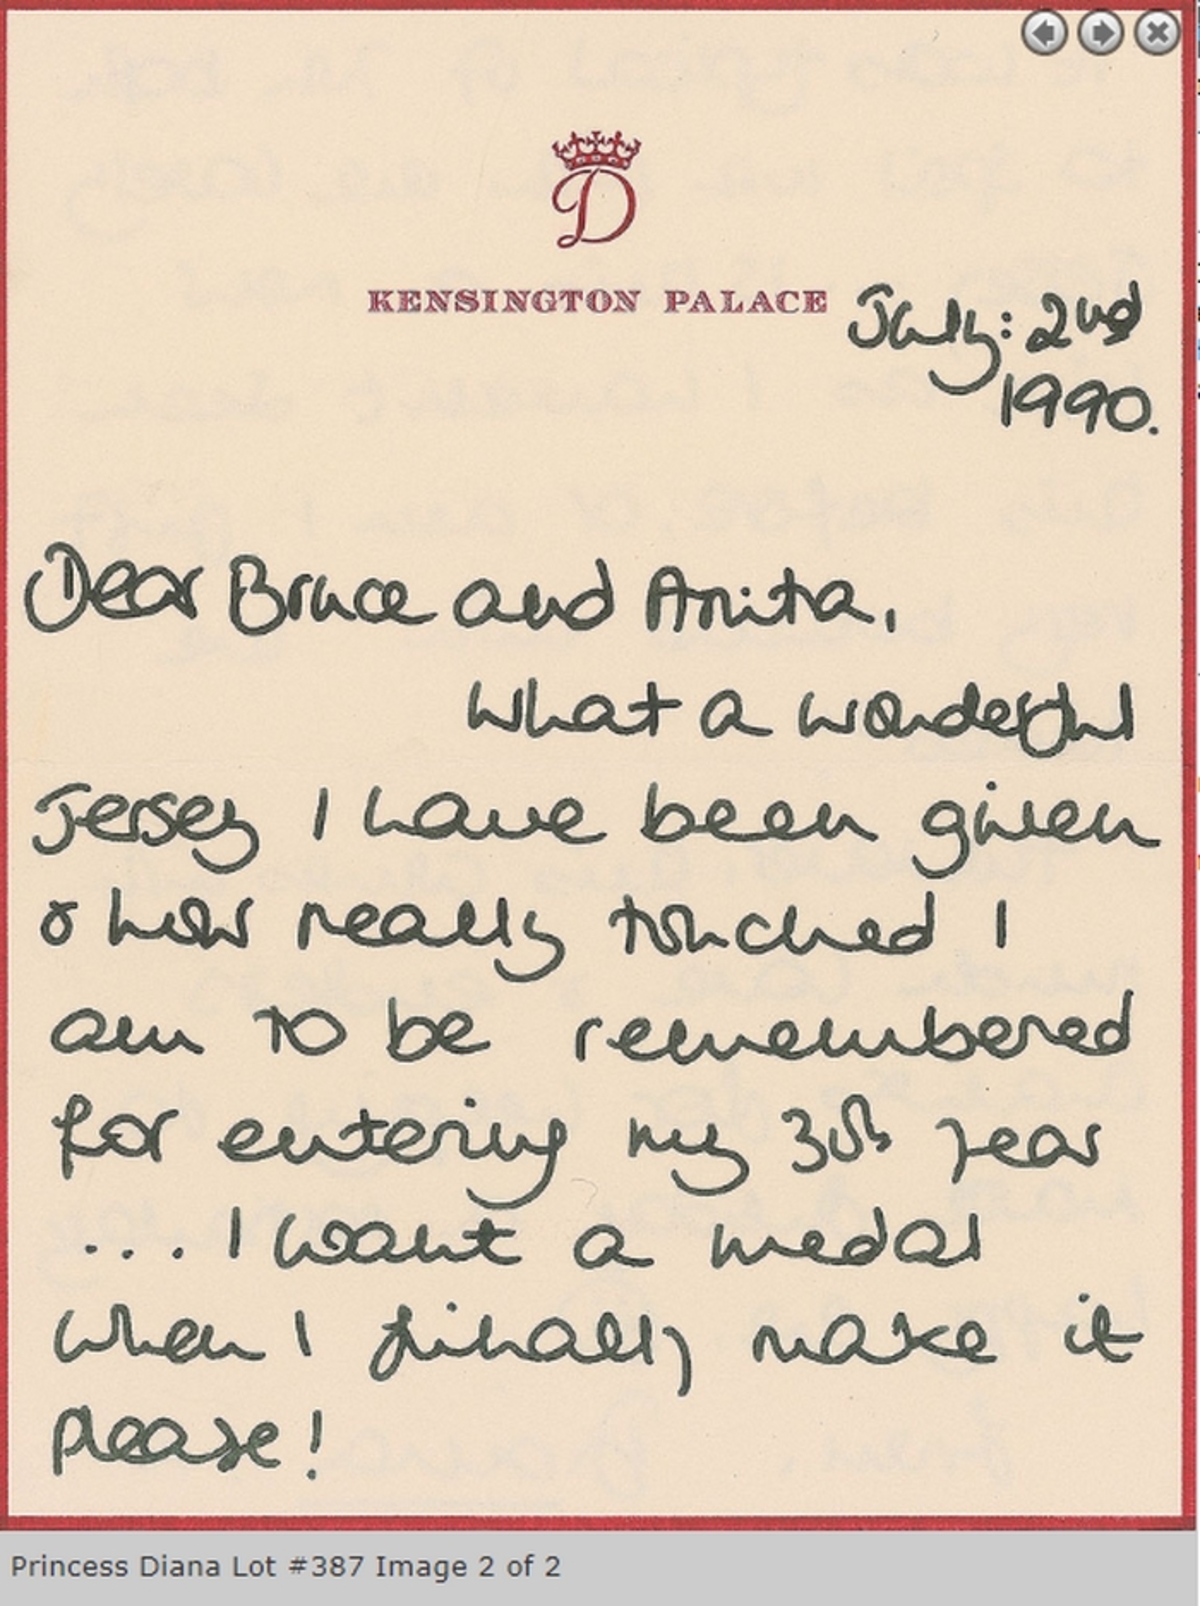 D
KENSINGTON PALACE
July: 2nd
1990.
Dear Bruce and Anita,
What a wonderful
Jersey I have been given
& how really touched I
am to be remembered
for entering my 30th year
... I want a medal
when I finally make it
please!
Princess Diana Lot #387 Image 2 of 2